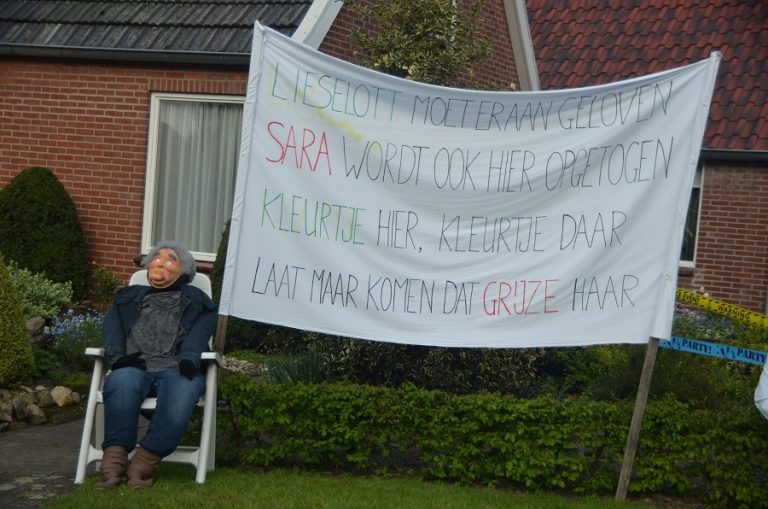 LIESELOTT MOET ERAAN GELOVEN
SARA WORDT OOK HIER OPGETOGEN
KLEURTJE HIER, KLEURTJE DAAR
LAAT MAAR KOMEN DAT GRIJZE HAAR
PARTY!
PARTY